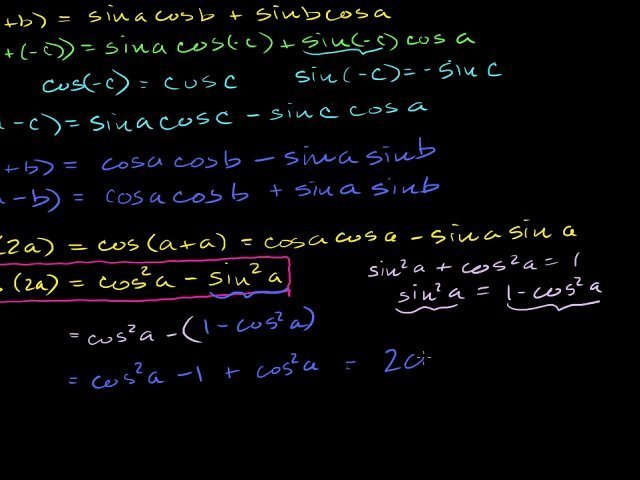 +b) = sin a cos b + sin b cos a
+ (-c)) = sin a cos(-c) + sin(-c) cos a
cos(-c) = cos c sin(-c) = -sin c
a - c) = sin a cos c - sin c cos a
+ b) = cos a cos b - sin a sin b
a - b) = cos a cos b + sin a sin b
(2a) = cos(a+a) = cos a cos a - sin a sin a
s (2a) = cos²a - sin²a
sin²a + cos²a = 1
sin²a = 1 - cos²a
= cos²a - (1 - cos²a)
= cos²a - 1 + cos²a = 2c